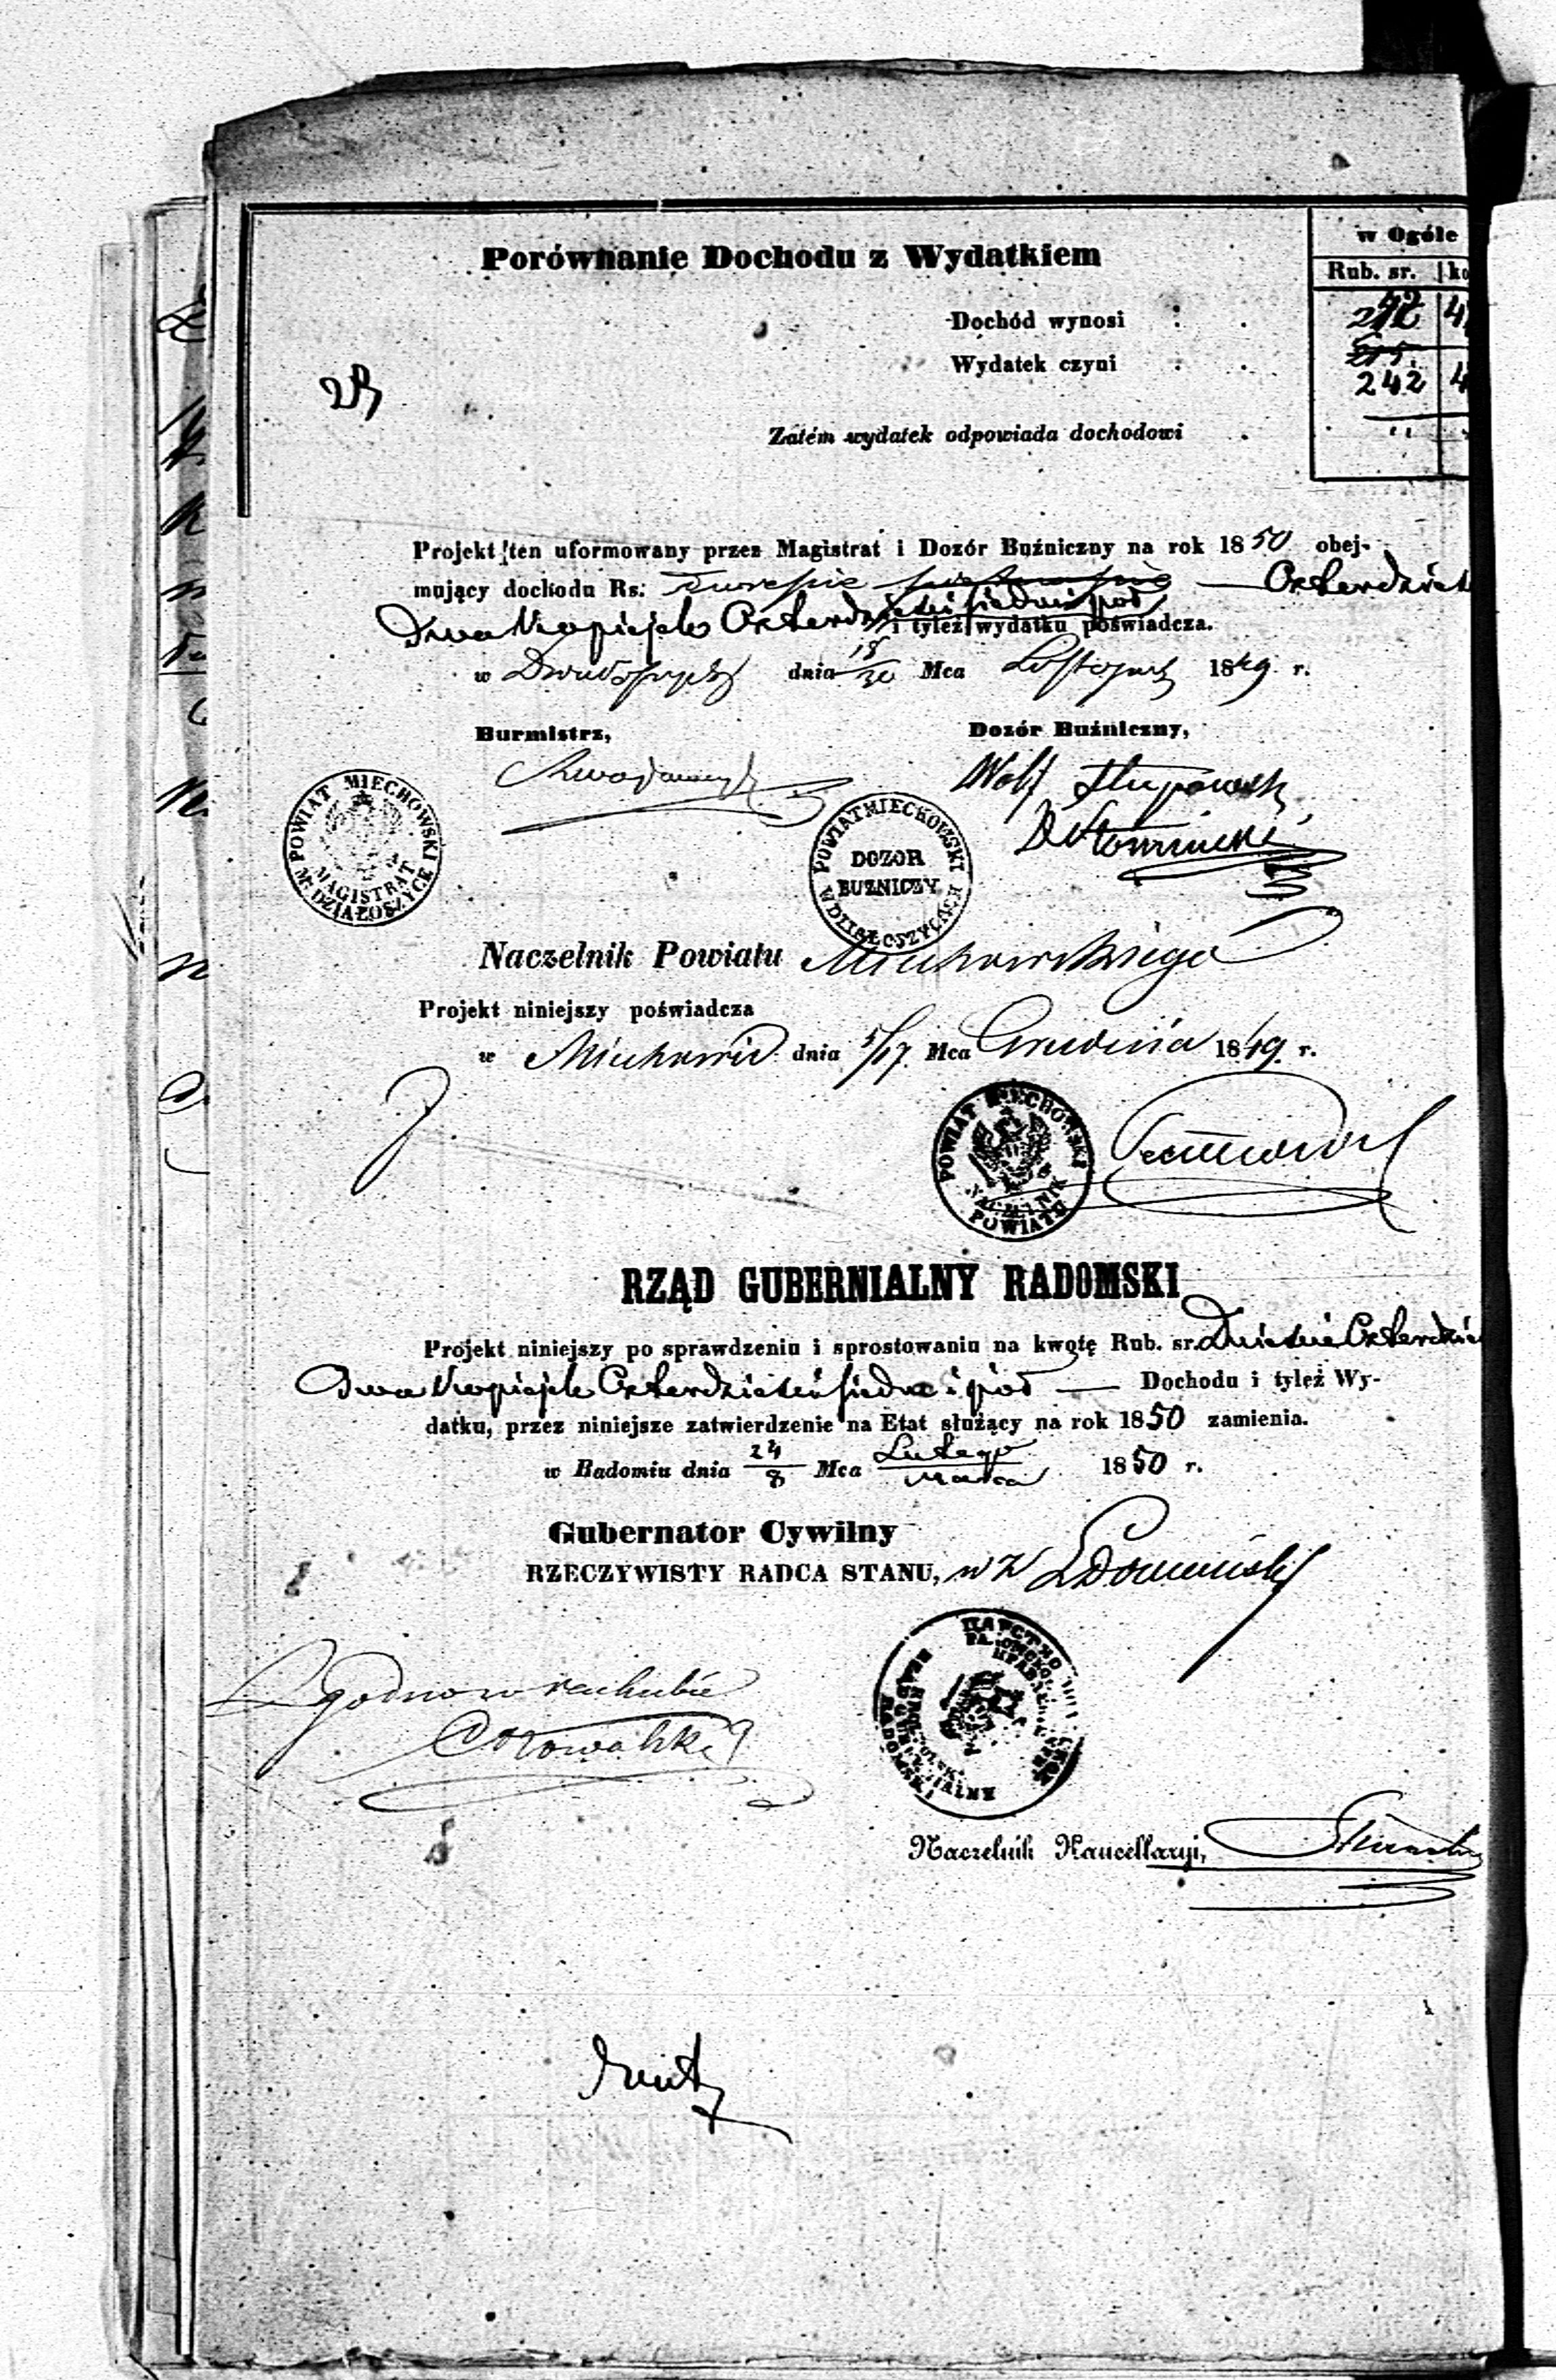 Porównanie Dochodu z Wydatkiem
w Ogóle
Rub. sr. ko
Dochód wynosi 242 4
Wydatek czyni 242 4
Zatém wydatek odpowiada dochodowi " "
Projekt ten uformowany przez Magistrat i Dozór Buźniczny na rok 1850 obej-
mujący dochodu Rs. Dwieście Czterdzieści
Dwa Kopiejek Czterdzieści siedm i pół i tyleż wydatku poświadcza.
w Działoszycach dnia 18/30 Mca Listopada 1849 r.
Burmistrz, Dozór Buźniczny,
Wolf
POWIAT MIECHOWSKI
MAGISTRAT
M. DZIAŁOSZYCE
POWIAT MIECHOWSKI
DOZOR
BUZNICZY
W DZIAŁOSZYCACH
Naczelnik Powiatu Miechowskiego
Projekt niniejszy poświadcza
w Miechowie dnia 5/17 Mca Grudnia 1849 r.
POWIAT MIECHOWSKI
NACZELNIK
POWIATU
RZĄD GUBERNIALNY RADOMSKI
Projekt niniejszy po sprawdzeniu i sprostowaniu na kwotę Rub. sr. Dwieście Czterdzie
Dwa Kopiejek Czterdzieści siedm i pół — Dochodu i tyleż Wy-
datku, przez niniejsze zatwierdzenie na Etat służący na rok 1850 zamienia.
w Radomiu dnia 24/8 Mca Lutego/Marca 1850 r.
Gubernator Cywilny
RZECZYWISTY RADCA STANU, w z
Zgodno w rachubie
Naczelnik Kancellaryi,